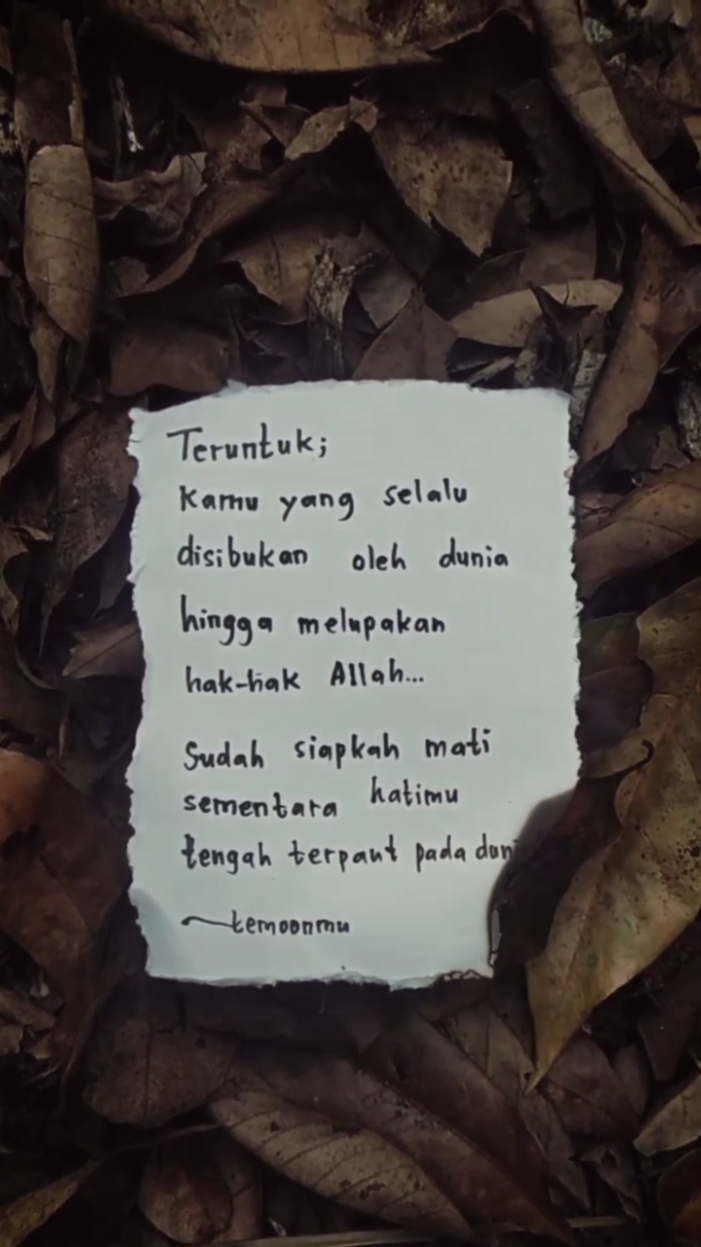 Teruntuk;
Kamu yang selalu
disibukan oleh dunia
hingga melupakan
hak-hak Allah...
Sudah siapkah mati
sementara hatimu
tengah terpaut pada duni
~temoonmu